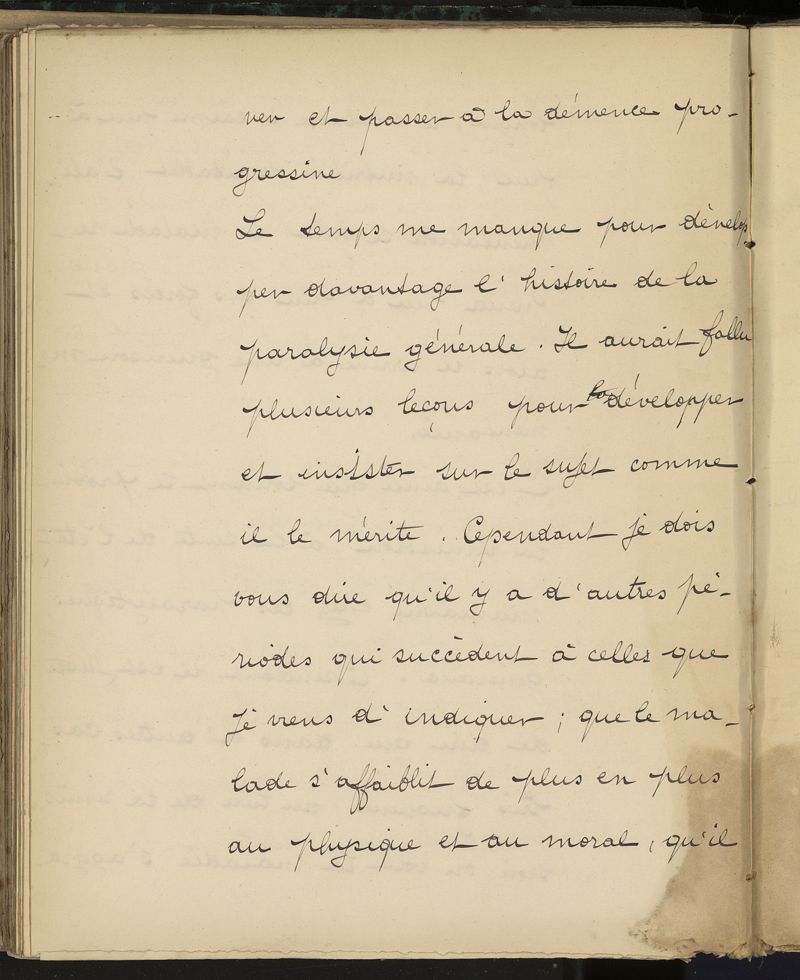 ver et passer à la démence pro-
gressive
Le temps me manque pour dévelop
per davantage l'histoire de la
paralysie générale. Il aurait fallu
plusieurs leçons pour la développer
et insister sur le sujet comme
il le mérite. Cependant je dois
vous dire qu'il y a d'autres pé-
riodes qui succèdent à celles que
je viens d'indiquer; que le ma-
lade s'affaiblit de plus en plus
au physique et au moral, qu'il